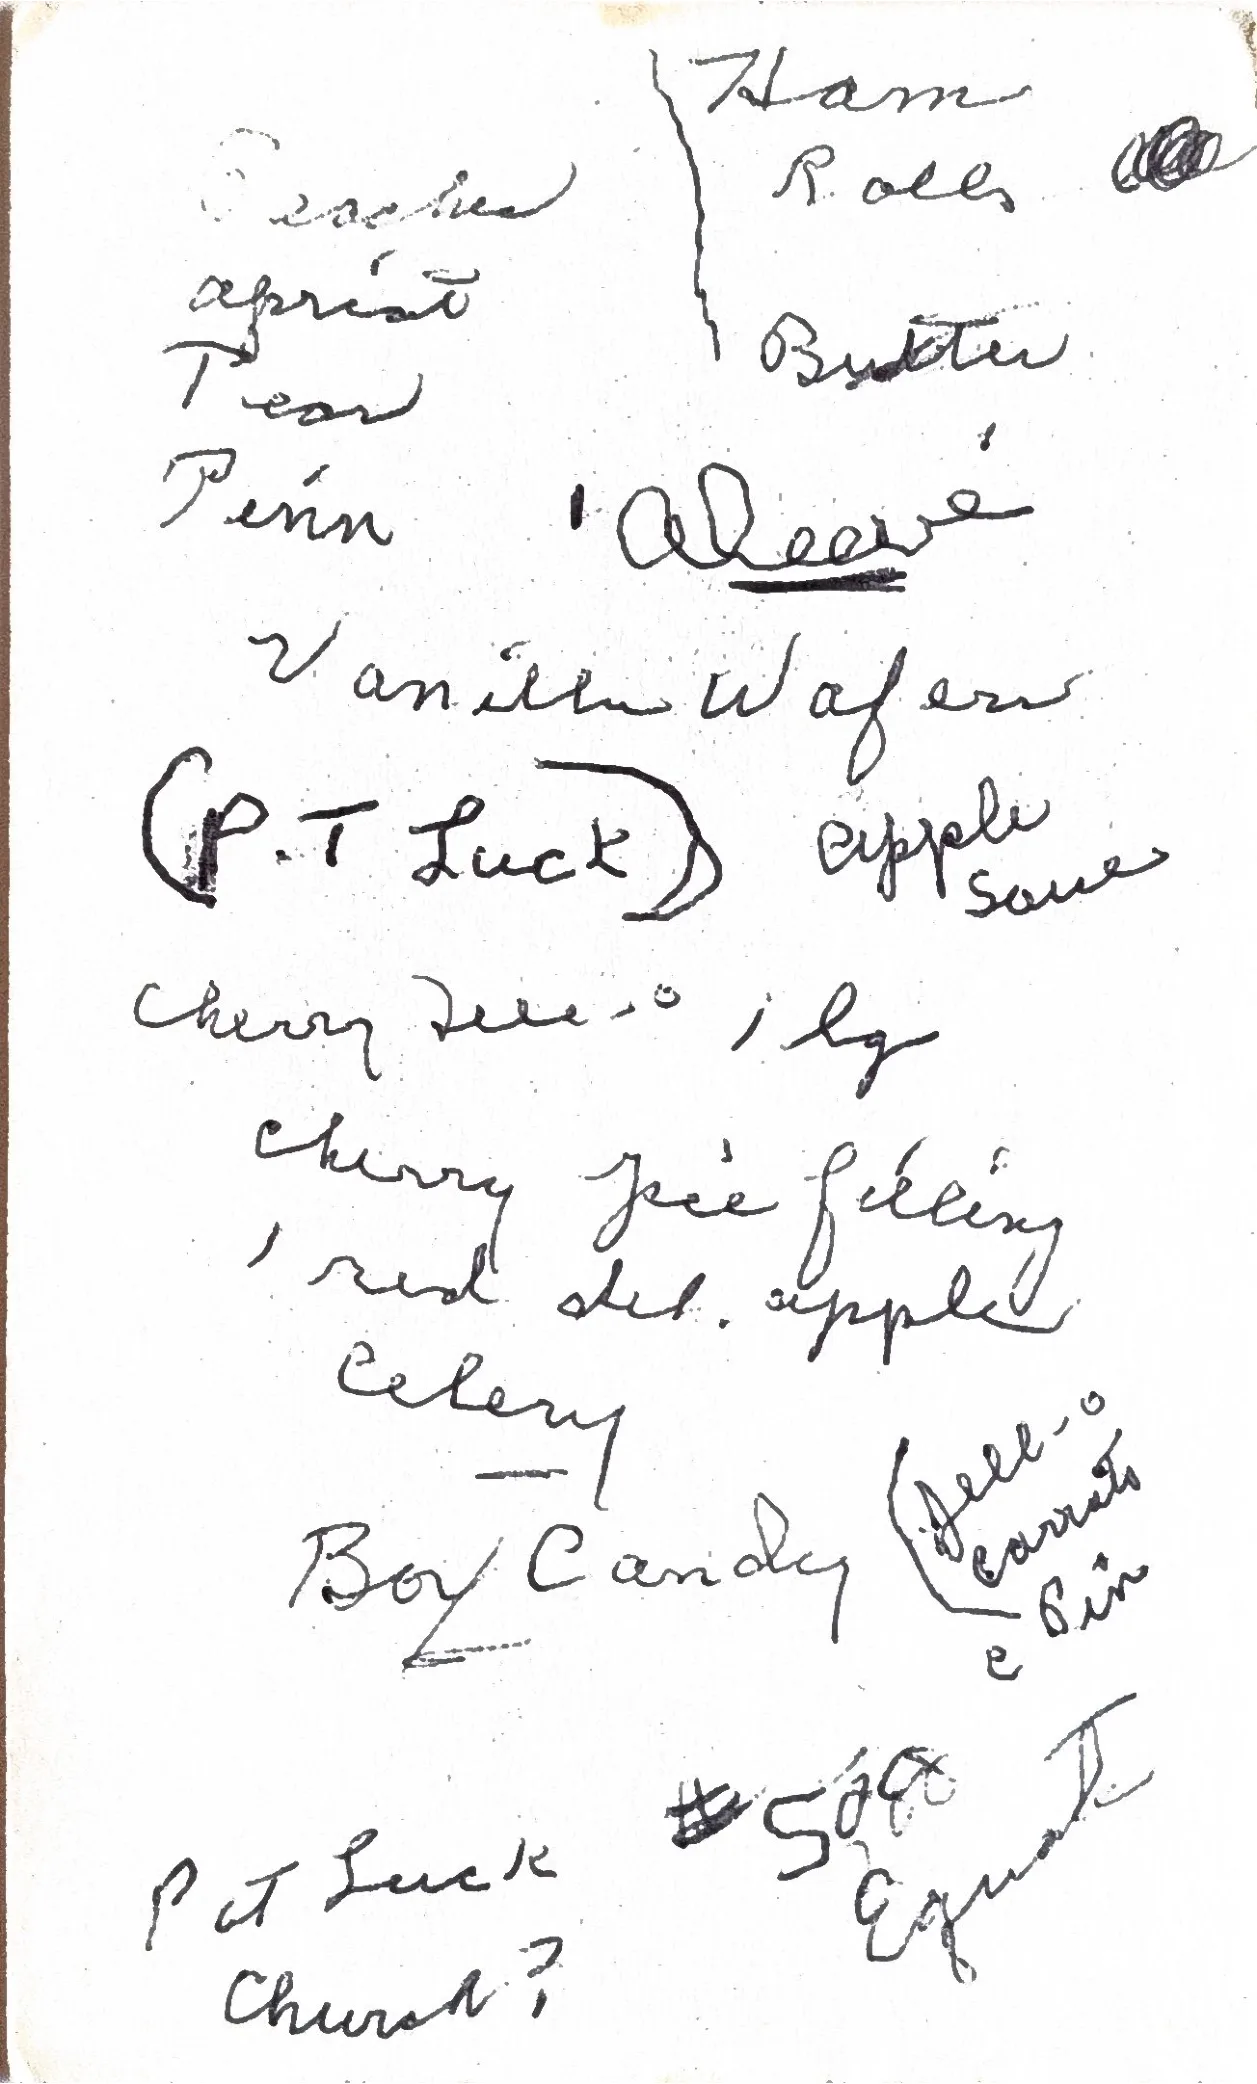 Ham
Rolls
Butter
Peaches
apricot
Pear
Pein
Vanilla Wafers
(P.T Luck)
apple
sauce
Cherry Jell-o 1 lg
Cherry pie filling
1 red del. apple
Celery
Box Candy
Jell-o
carrots
Pin
c
Pot Luck
Church?